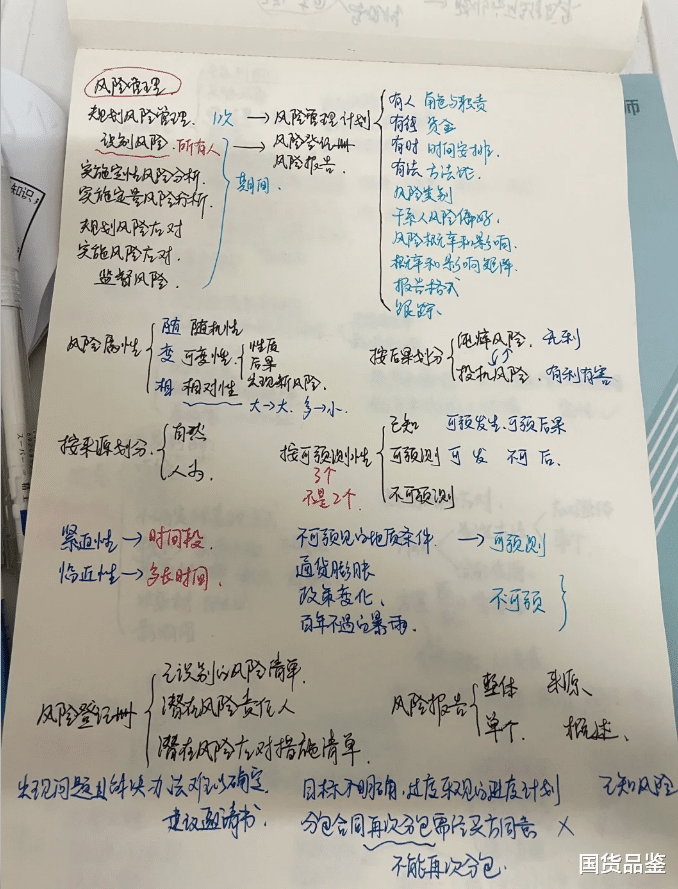 风险管理
规划风险管理. 1次 → 风险管理计划
有人 角色与职责
有钱 资金
有时 时间安排.
有法 方法论.
风险类别
干系人风险偏好.
风险概率和影响.
概率和影响矩阵.
报告格式
跟踪.
识别风险. 所有人 → 风险登记册
风险报告.
实施定性风险分析.
实施定量风险分析.
期间.
规划风险应对
实施风险应对.
监督风险.
风险属性
随 随机性
变 可变性. 性质 后果 出现新风险.
相 相对性
大→大. 多→小.
按后果划分
纯粹风险. 无利
投机风险. 有利有害
按来源划分.
自然
人为.
按可预测性
3个
不是2个.
已知 可预发生.可预后果
可预测 可发 不可后.
不可预测
紧迫性 → 时间段.
临近性 → 多长时间.
不可预见的地质条件. → 可预测
通货膨胀
政策变化、
百年不遇的暴雨.
不可预
风险登记册
已识别的风险清单.
潜在风险责任人
潜在风险应对措施清单.
风险报告
整体 来源、
单个. 概述.
出现问题且解决办法难以确定.
建议邀请书.
目标不明确,过度乐观的进度计划 已知风险
分包合同再次分包需经买方同意 ×
不能再次分包.
知识
师
国货品鉴